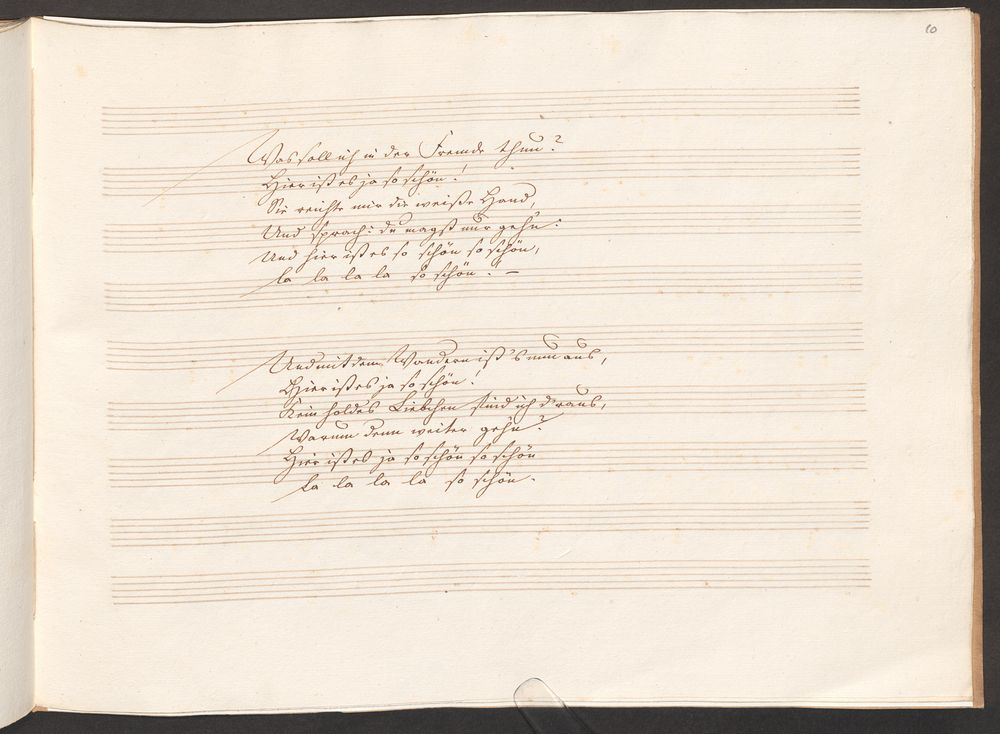 10
Was soll ich in der Fremde thun?
Hier ist es ja so schön!
Sie reichte mir die weiße Hand,
Und sprach: du magst nur gehn:
Und hier ist es so schön so schön,
La la la la so schön! –
Und mit dem Wandern ist's nun aus,
Hier ist es ja so schön!
Kein holdes Liebchen find ich d'raus,
Warum denn weiter gehn?
Hier ist es ja so schön so schön
La la la la so schön.